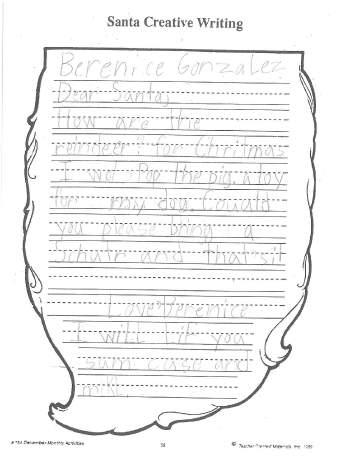 Santa Creative Writing
Berenice Gonzalez
Dear Santa,
How are the
reindeer? for Chritmas
I wot Pop the pig, a toy
for my dog. Couald
you please bring a
Schuir and that's it
Love Berenice
I will lif you
sum case and
milk.
December Monthly Activities
© Teacher Created Materials, Inc.